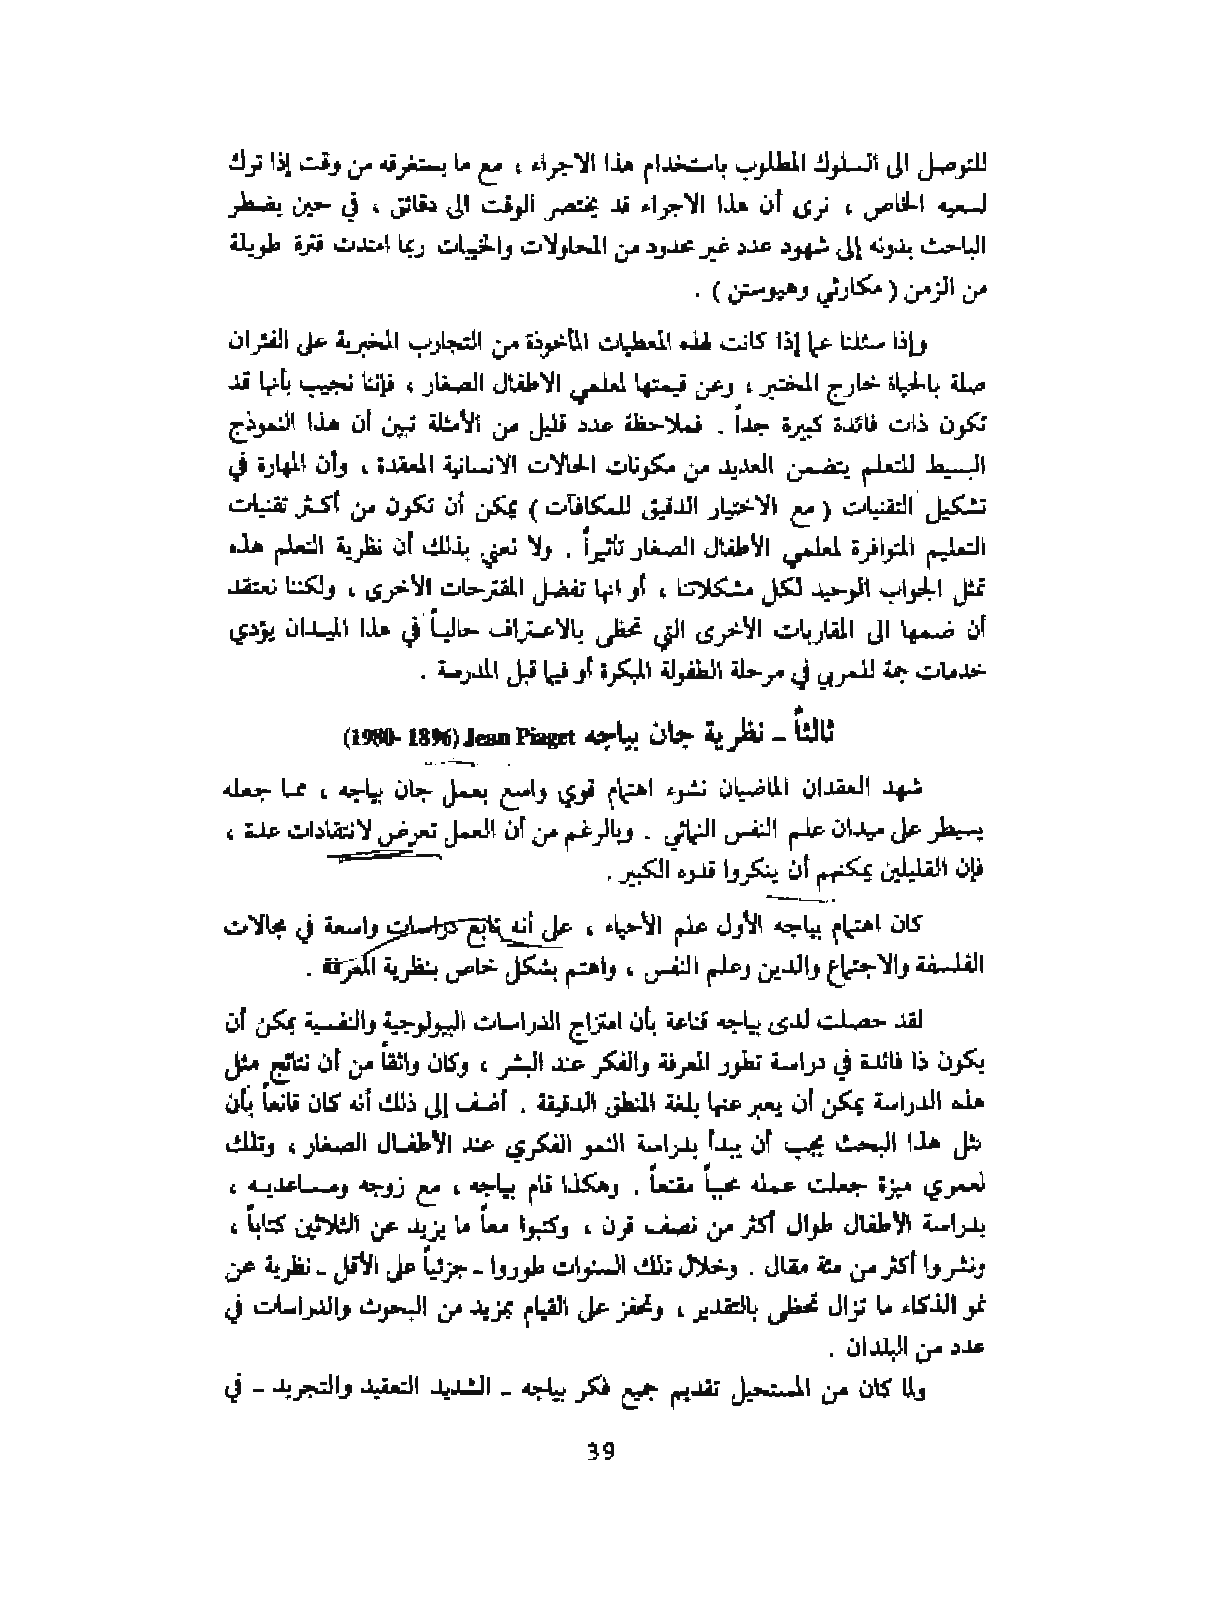 للتوصل الى السلوك المطلوب باستخدام هذا الاجراء ، مع ما يستغرقه من وقت إذا ترك
لسعيه الخاص ، نرى أن هذا الاجراء قد يختصر الوقت الى دقائق ، في حين يضطر
الباحث بدونه إلى شهود عدد غير محدود من المحاولات والخيبات ربما امتدت فترة طويلة
من الزمن ( مكارثي وهيوستن ) .
وإذا سئلنا عما إذا كانت لهذه المعطيات المأخوذة من التجارب المخبرية على الفئران
صلة بالحياة خارج المختبر ، وعن قيمتها لمعلمي الاطفال الصغار ، فإننا نجيب بأنها قد
تكون ذات فائدة كبيرة جداً . فملاحظة عدد قليل من الأمثلة تبين أن هذا النموذج
البسيط للتعلم يتضمن العديد من مكونات الحالات الانسانية المعقدة ، وأن المهارة في
تشكيل التقنيات ( مع الاختيار الدقيق للمكافآت ) يمكن أن تكون من أكثر تقنيات
التعليم المتوافرة لمعلمي الأطفال الصغار تأثيراً . ولا نعني بذلك أن نظرية التعلم هذه
تمثل الجواب الوحيد لكل مشكلاتنا ، أو انها تفضل المقترحات الأخرى ، ولكننا نعتقد
أن ضمها الى المقاربات الأخرى التي تحظى بالاعتراف حالياً في هذا الميدان يؤدي
خدمات جمة للمربي في مرحلة الطفولة المبكرة أو فيما قبل المدرسة .
ثالثاً ـ نظرية جان بياجه Jean Piaget (1896 -1980)
شهد العقدان الماضيان نشوء اهتمام قوي واسع بعمل جان بياجه ، مما جعله
يسيطر على ميدان علم النفس النمائي . وبالرغم من أن العمل تعرض لانتقادات عدة ،
فإن القليلين يمكنهم أن ينكروا قدره الكبير .
كان اهتمام بياجه الأول علم الأحياء ، على أنه تابع دراسات واسعة في مجالات
الفلسفة والاجتماع والدين وعلم النفس ، واهتم بشكل خاص بنظرية المعرفة .
لقد حصلت لدى بياجه قناعة بأن امتزاج الدراسات البيولوجية والنفسية يمكن أن
يكون ذا فائدة في دراسة تطور المعرفة والفكر عند البشر ، وكان واثقاً من أن نتائج مثل
هذه الدراسة يمكن أن يعبر عنها بلغة المنطق الدقيقة . أضف إلى ذلك أنه كان قانعاً بأن
مثل هذا البحث يجب أن يبدأ بدراسة النمو الفكري عند الأطفال الصغار ، وتلك
لعمري ميزة جعلت عمله محبباً مقنعاً . وهكذا قام بياجه ، مع زوجه ومساعديه ،
بدراسة الأطفال طوال أكثر من نصف قرن ، وكتبوا معاً ما يزيد عن الثلاثين كتاباً ،
ونشروا أكثر من مئة مقال . وخلال تلك السنوات طوروا ـ جزئياً على الأقل ـ نظرية عن
نمو الذكاء ما تزال تحظى بالتقدير ، وتحفز على القيام بمزيد من البحوث والدراسات في
عدد من البلدان .
ولما كان من المستحيل تقديم جميع فكر بياجه ـ الشديد التعقيد والتجريد ـ في
39